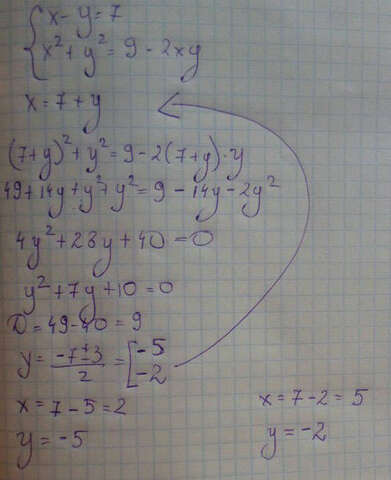 { x - y = 7
x² + y² = 9 - 2xy
x = 7 + y
(7+y)² + y² = 9 - 2(7+y)·y
49 + 14y + y² + y² = 9 - 14y - 2y²
4y² + 28y + 40 = 0
y² + 7y + 10 = 0
D = 49 - 40 = 9
y = (-7±3)/2 = [ -5
-2
x = 7 - 5 = 2
y = -5
x = 7 - 2 = 5
y = -2